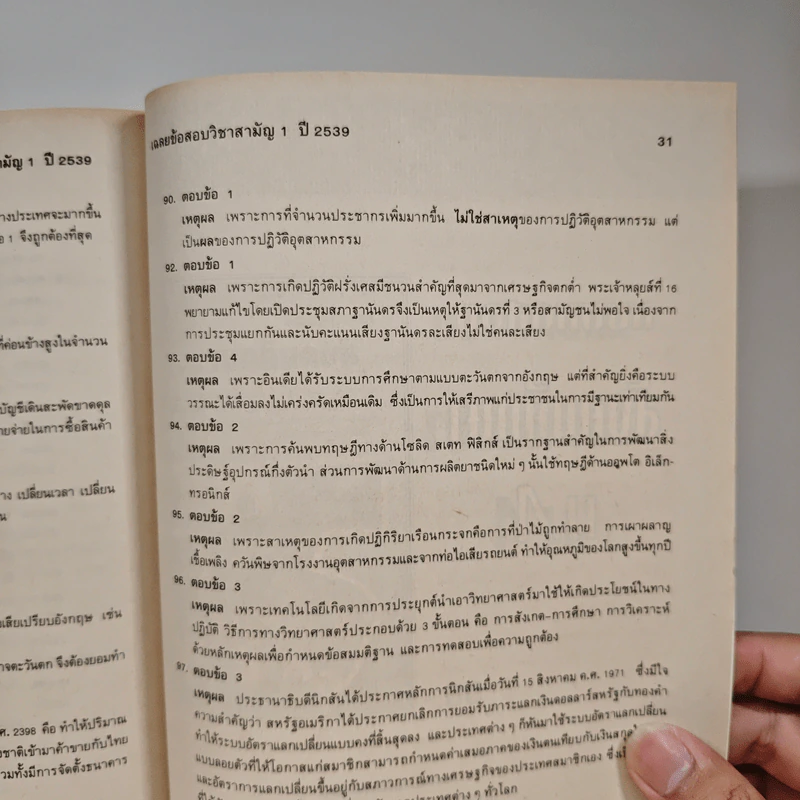 สามัญ 1 ปี 2539
างประเทศจะมากขึ้น
อ 1 จึงถูกต้องที่สุด
ที่ค่อนข้างสูงในจำนวน
บัญชีเดินสะพัดขาดดุล
ายจ่ายในการซื้อสินค้า
าง เปลี่ยนเวลา เปลี่ยน
น
เสียเปรียบอังกฤษ เช่น
าจตะวันตก จึงต้องยอมทำ
ศ. 2398 คือ ทำให้ปริมาณ
งชาติเข้ามาค้าขายกับไทย
วมทั้งมีการจัดตั้งธนาคาร
เฉลยข้อสอบวิชาสามัญ 1 ปี 2539
31
90. ตอบข้อ 1
เหตุผล เพราะการที่จำนวนประชากรเพิ่มมากขึ้น ไม่ใช่สาเหตุของการปฏิวัติอุตสาหกรรม แต่
เป็นผลของการปฏิวัติอุตสาหกรรม
92. ตอบข้อ 1
เหตุผล เพราะการเกิดปฏิวัติฝรั่งเศสมีชนวนสำคัญที่สุดมาจากเศรษฐกิจตกต่ำ พระเจ้าหลุยส์ที่ 16
พยายามแก้ไขโดยเปิดประชุมสภาฐานันดรจึงเป็นเหตุให้ฐานันดรที่ 3 หรือสามัญชนไม่พอใจ เนื่องจาก
การประชุมแยกกันและนับคะแนนเสียงฐานันดรละเสียงไม่ใช่คนละเสียง
93. ตอบข้อ 4
เหตุผล เพราะอินเดียได้รับระบบการศึกษาตามแบบตะวันตกจากอังกฤษ แต่ที่สำคัญยิ่งคือระบบ
วรรณะได้เสื่อมลงไม่เคร่งครัดเหมือนเดิม ซึ่งเป็นการให้เสรีภาพแก่ประชาชนในการมีฐานะเท่าเทียมกัน
94. ตอบข้อ 2
เหตุผล เพราะการค้นพบทฤษฎีทางด้านโซลิด สเตท ฟิสิกส์ เป็นรากฐานสำคัญในการพัฒนาสิ่ง
ประดิษฐ์อุปกรณ์กึ่งตัวนำ ส่วนการพัฒนาด้านการผลิตยาชนิดใหม่ ๆ นั้นใช้ทฤษฎีด้านออพโต อิเล็ก-
ทรอนิกส์
95. ตอบข้อ 2
เหตุผล เพราะสาเหตุของการเกิดปฏิกิริยาเรือนกระจกคือการที่ป่าไม้ถูกทำลาย การเผาผลาญ
เชื้อเพลิง ควันพิษจากโรงงานอุตสาหกรรมและจากท่อไอเสียรถยนต์ ทำให้อุณหภูมิของโลกสูงขึ้นทุกปี
96. ตอบข้อ 3
เหตุผล เพราะเทคโนโลยีเกิดจากการประยุกต์นำเอาวิทยาศาสตร์มาใช้ให้เกิดประโยชน์ในทาง
ปฏิบัติ วิธีการทางวิทยาศาสตร์ประกอบด้วย 3 ขั้นตอน คือ การสังเกต-การศึกษา การวิเคราะห์
ด้วยหลักเหตุผลเพื่อกำหนดข้อสมมติฐาน และการทดสอบเพื่อความถูกต้อง
97. ตอบข้อ 3
เหตุผล ประธานาธิบดีนิกสันได้ประกาศหลักการนิกสันเมื่อวันที่ 15 สิงหาคม ค.ศ. 1971 ซึ่งมีใจ
ความสำคัญว่า สหรัฐอเมริกาได้ประกาศยกเลิกการยอมรับภาระแลกเงินดอลลาร์สหรัฐกับทองคำ
ทำให้ระบบอัตราแลกเปลี่ยนแบบคงที่สิ้นสุดลง และประเทศต่าง ๆ ก็หันมาใช้ระบบอัตราแลกเปลี่ยน
แบบลอยตัวที่ให้โอกาสแก่สมาชิกสามารถกำหนดค่าเสมอภาคของเงินตนเทียบกับเงินสกุล
และอัตราการแลกเปลี่ยนขึ้นอยู่กับสภาวการณ์ทางเศรษฐกิจของประเทศสมาชิกเอง
ประเทศต่าง ๆ ทั่วโลก